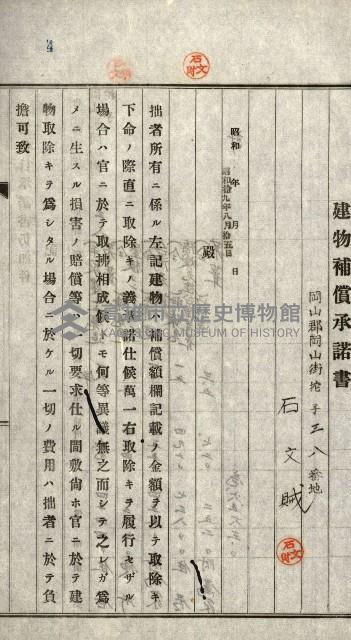 建物補償承諾書
岡山郡岡山街
三八番地
石文賦
石文賦
昭和 年 月 日
昭和拾九年八月拾五日
殿
拙者所有ニ係ル左記建物ハ補償額欄記載ノ金額ヲ以テ取除キ
下命ノ際直ニ取除キノ義承諾仕候萬一右取除キヲ履行セザル
場合ハ官ニ於テ取拂相成候トモ何等異議無之而シテ之レガ為
メニ生スル損害ノ賠償等ハ一切要求仕ル間敷尚ホ官ニ於テ建
物取除キテ為シタル場合ニ於ケル一切ノ費用ハ拙者ニ於テ負
擔可致
高雄市立歷史博物館
KAOHSIUNG MUSEUM OF HISTORY